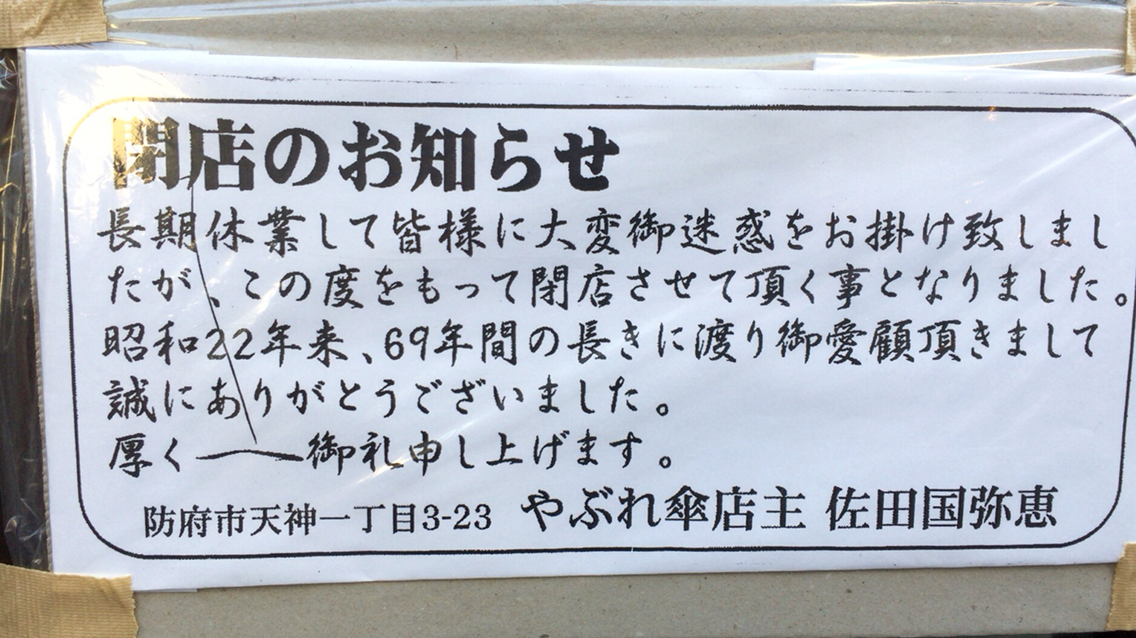 閉店のお知らせ
長期休業して皆様に大変御迷惑をお掛け致しまし
たが、この度をもって閉店させて頂く事となりました。
昭和22年来、69年間の長きに渡り御愛顧頂きまして
誠にありがとうございました。
厚く御礼申し上げます。
防府市天神一丁目3-23 やぶれ傘店主 佐田国弥恵